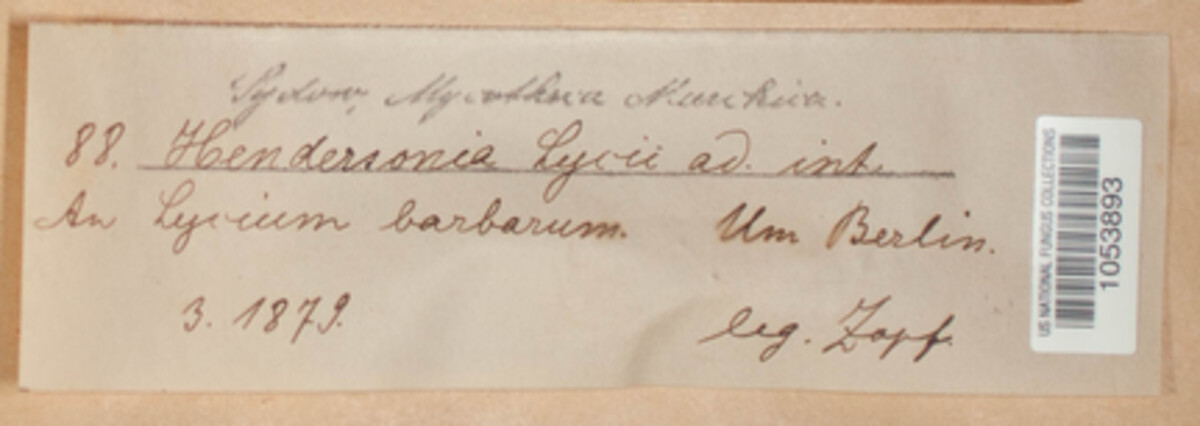 Sydow, Mycotheca Marchica.
88. Hendersonia Lycii ad. int.
An Lycium barbarum. Um Berlin.
3. 1879. leg. Zopf.
US NATIONAL FUNGUS COLLECTIONS
1053893